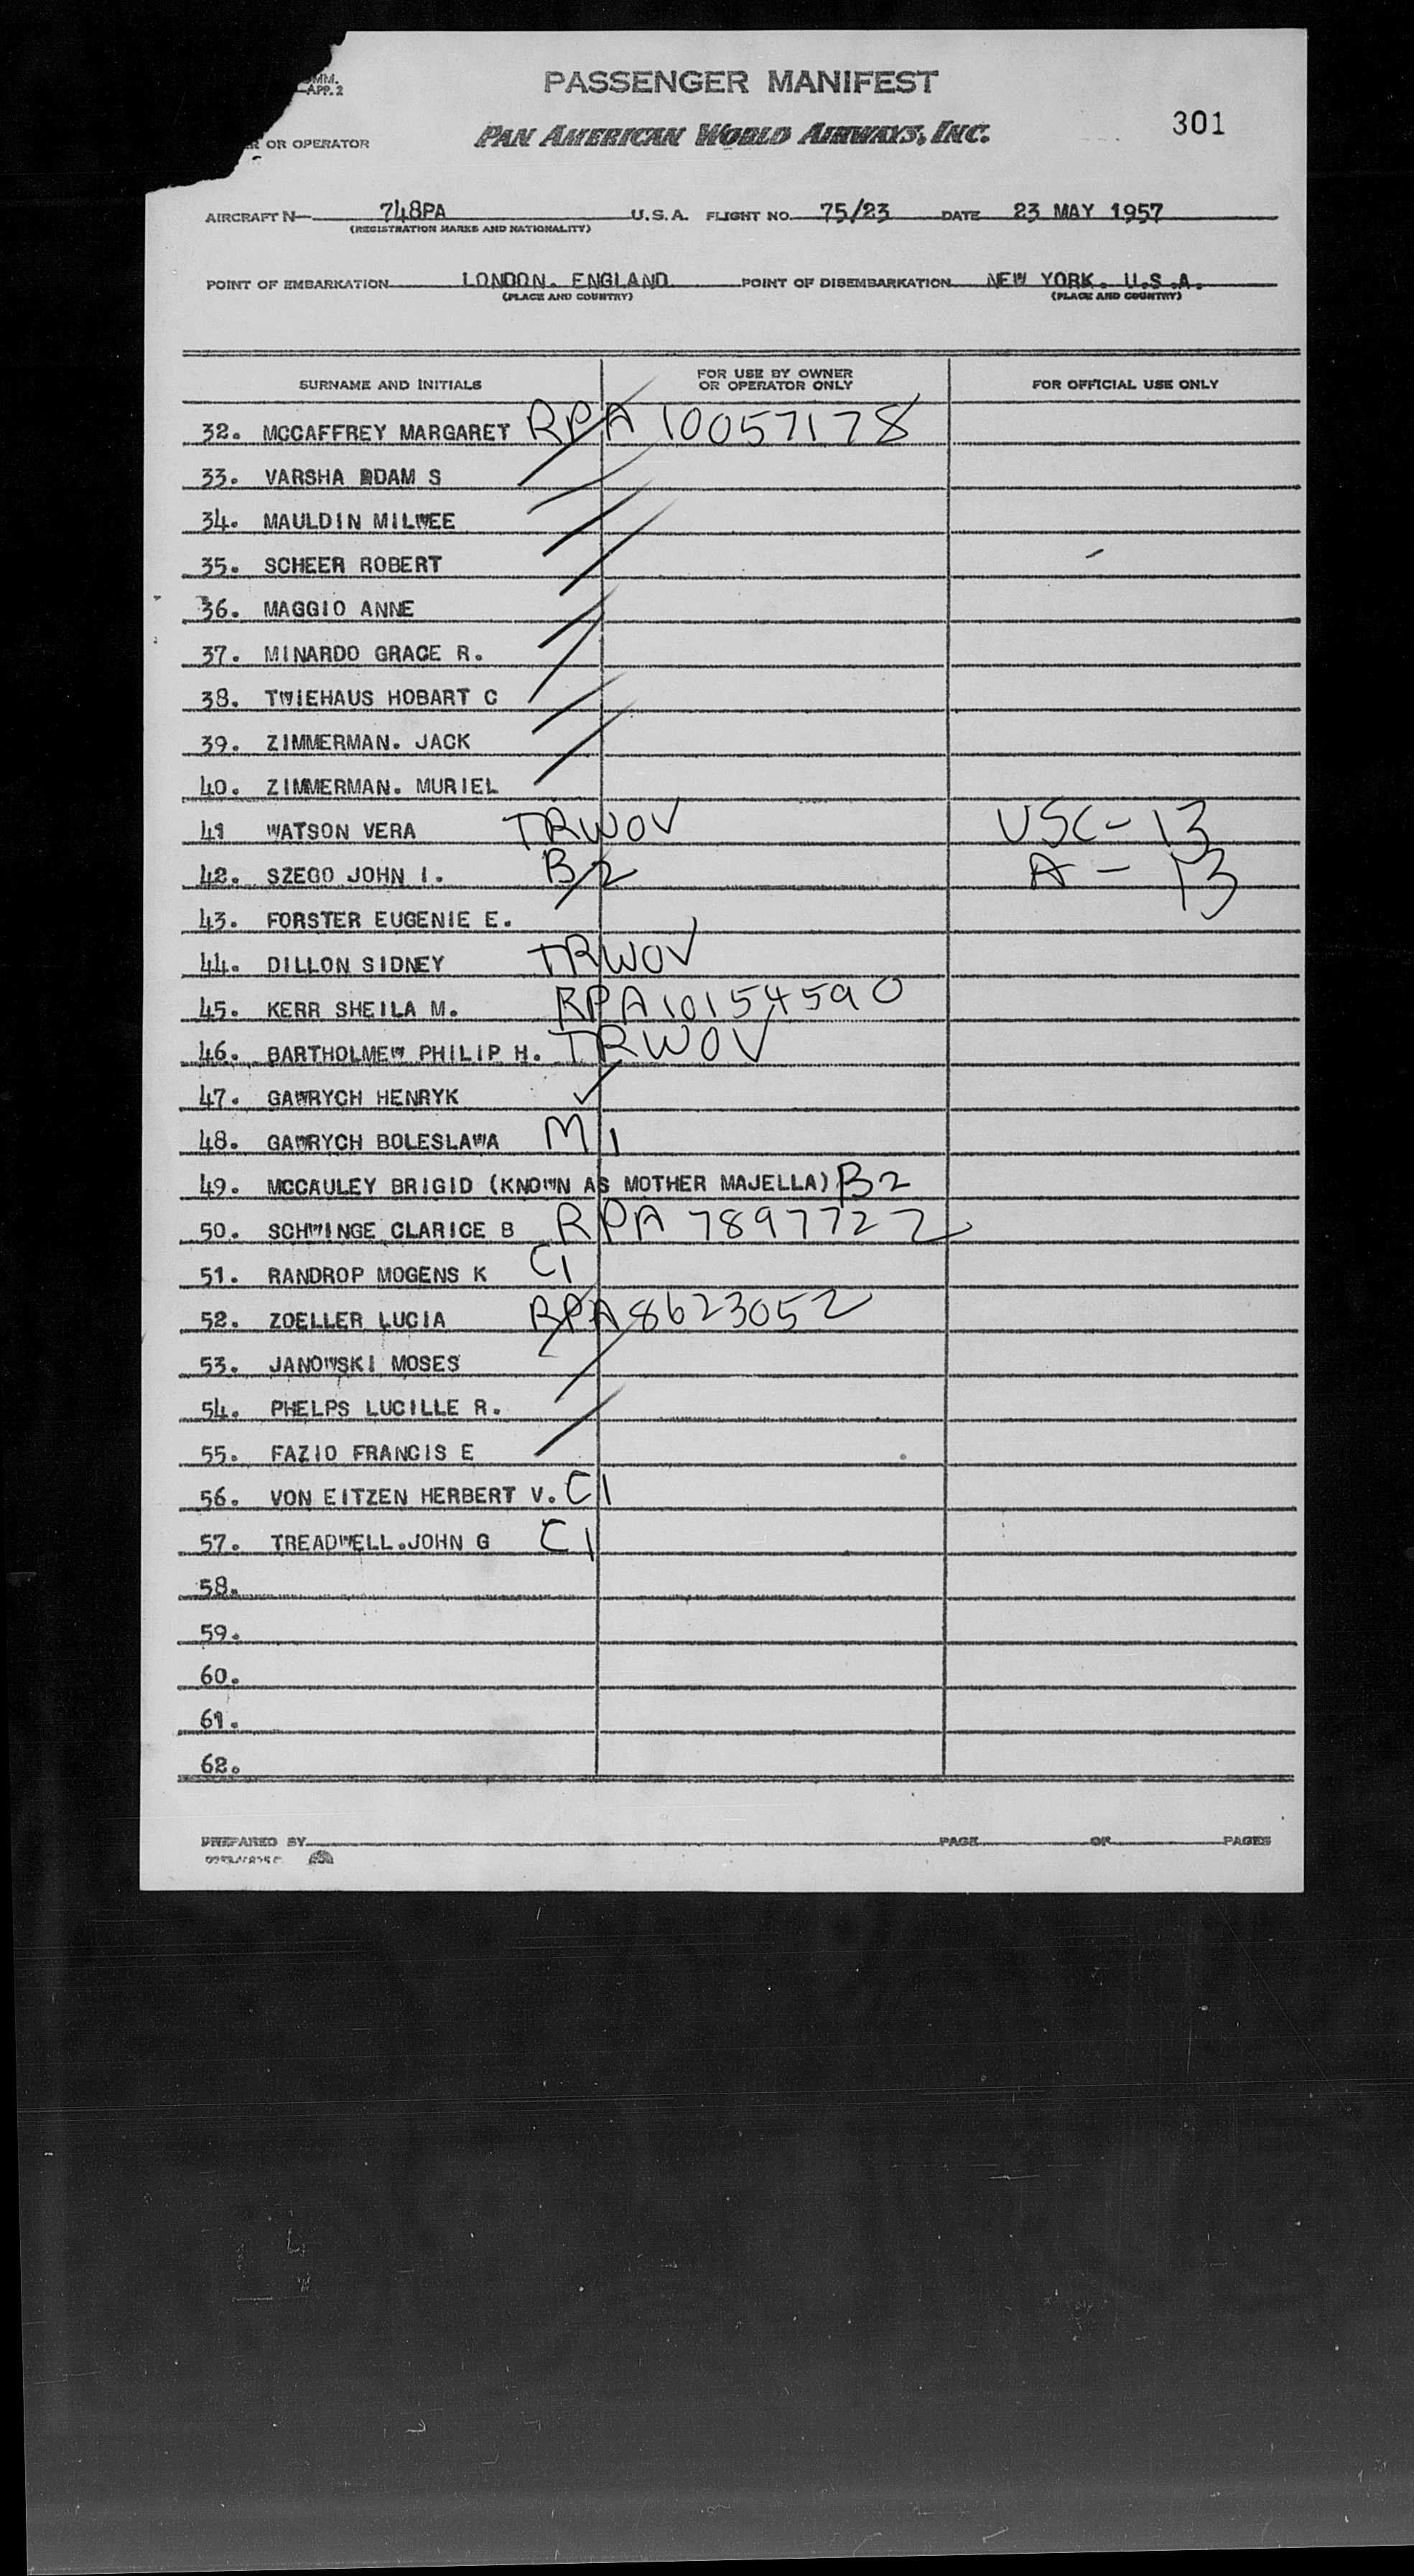 OMM.
APP. 2
PASSENGER MANIFEST
OR OPERATOR
PAN AMERICAN WORLD AIRWAYS, INC.
301
AIRCRAFT N— 748PA U.S.A. FLIGHT NO. 75/23 DATE 23 MAY 1957
(REGISTRATION MARKS AND NATIONALITY)
POINT OF EMBARKATION LONDON. ENGLAND POINT OF DISEMBARKATION NEW YORK. U.S.A.
(PLACE AND COUNTRY) (PLACE AND COUNTRY)
SURNAME AND INITIALS FOR USE BY OWNER OR OPERATOR ONLY FOR OFFICIAL USE ONLY
32. MCCAFFREY MARGARET RPA 10057178
33. VARSHA ADAM S
34. MAULDIN MILWEE
35. SCHEER ROBERT
36. MAGGIO ANNE
37. MINARDO GRACE R.
38. TWIEHAUS HOBART C
39. ZIMMERMAN. JACK
40. ZIMMERMAN. MURIEL
41 WATSON VERA TRWOV USC-13
42. SZEGO JOHN I. B2 A-13
43. FORSTER EUGENIE E.
44. DILLON SIDNEY TRWOV
45. KERR SHEILA M. RPA 10154590
46. BARTHOLMEW PHILIP H. TRWOV
47. GAWRYCH HENRYK ✓
48. GAWRYCH BOLESLAWA M1
49. MCCAULEY BRIGID (KNOWN AS MOTHER MAJELLA) B2
50. SCHWINGE CLARICE B RPA 7897722
51. RANDROP MOGENS K C1
52. ZOELLER LUCIA RPA 8623052
53. JANOWSKI MOSES
54. PHELPS LUCILLE R.
55. FAZIO FRANCIS E
56. VON EITZEN HERBERT V. C1
57. TREADWELL.JOHN G C1
58.
59.
60.
61.
62.
PREPARED BY PAGE OF PAGES